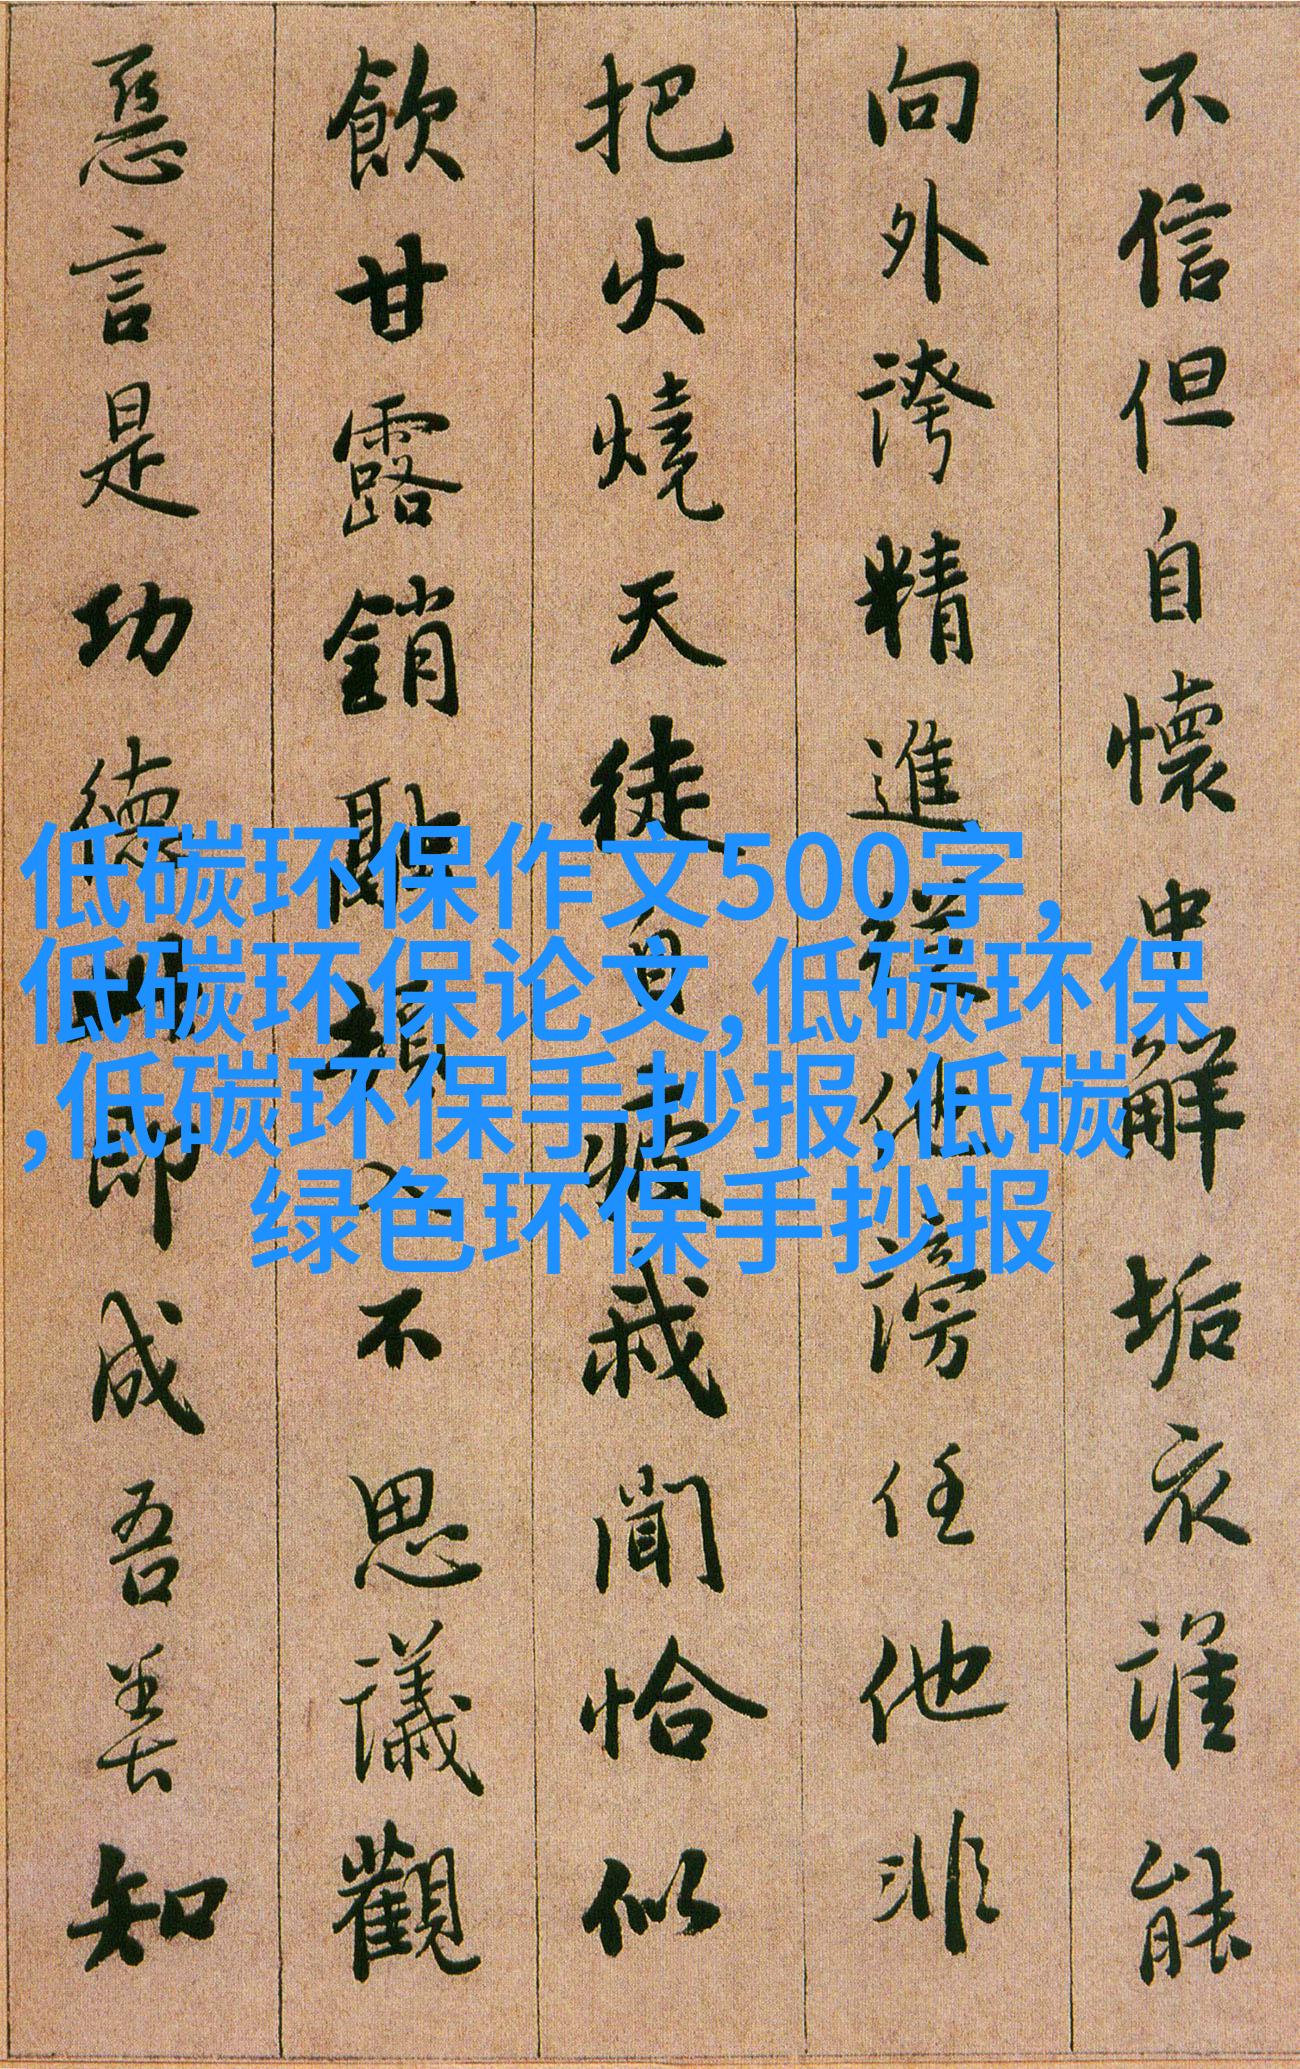 不信但自懷中解垢衣誰能
向外誇精進從他謗任他非
把火燒天徒自疲我聞恰似
飲甘露銷融頓入不思議觀
惡言是功德此即成吾善知
低碳环保作文500字,
低碳环保论文,低碳环保
,低碳环保手抄报,低碳
绿色环保手抄报